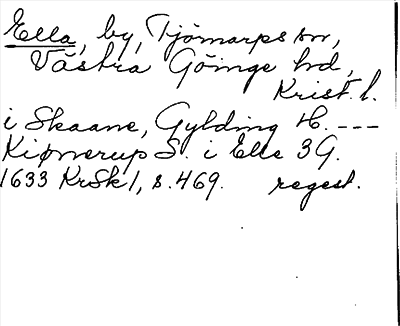 Ella, by, Tjörnarps sn,
Västra Göinge hd,
Krist. l.
i Skaane, Gylding H. ---
Kiønerup S. i Elle 3 G.
1633 KrSk 1, s. 469. regest.